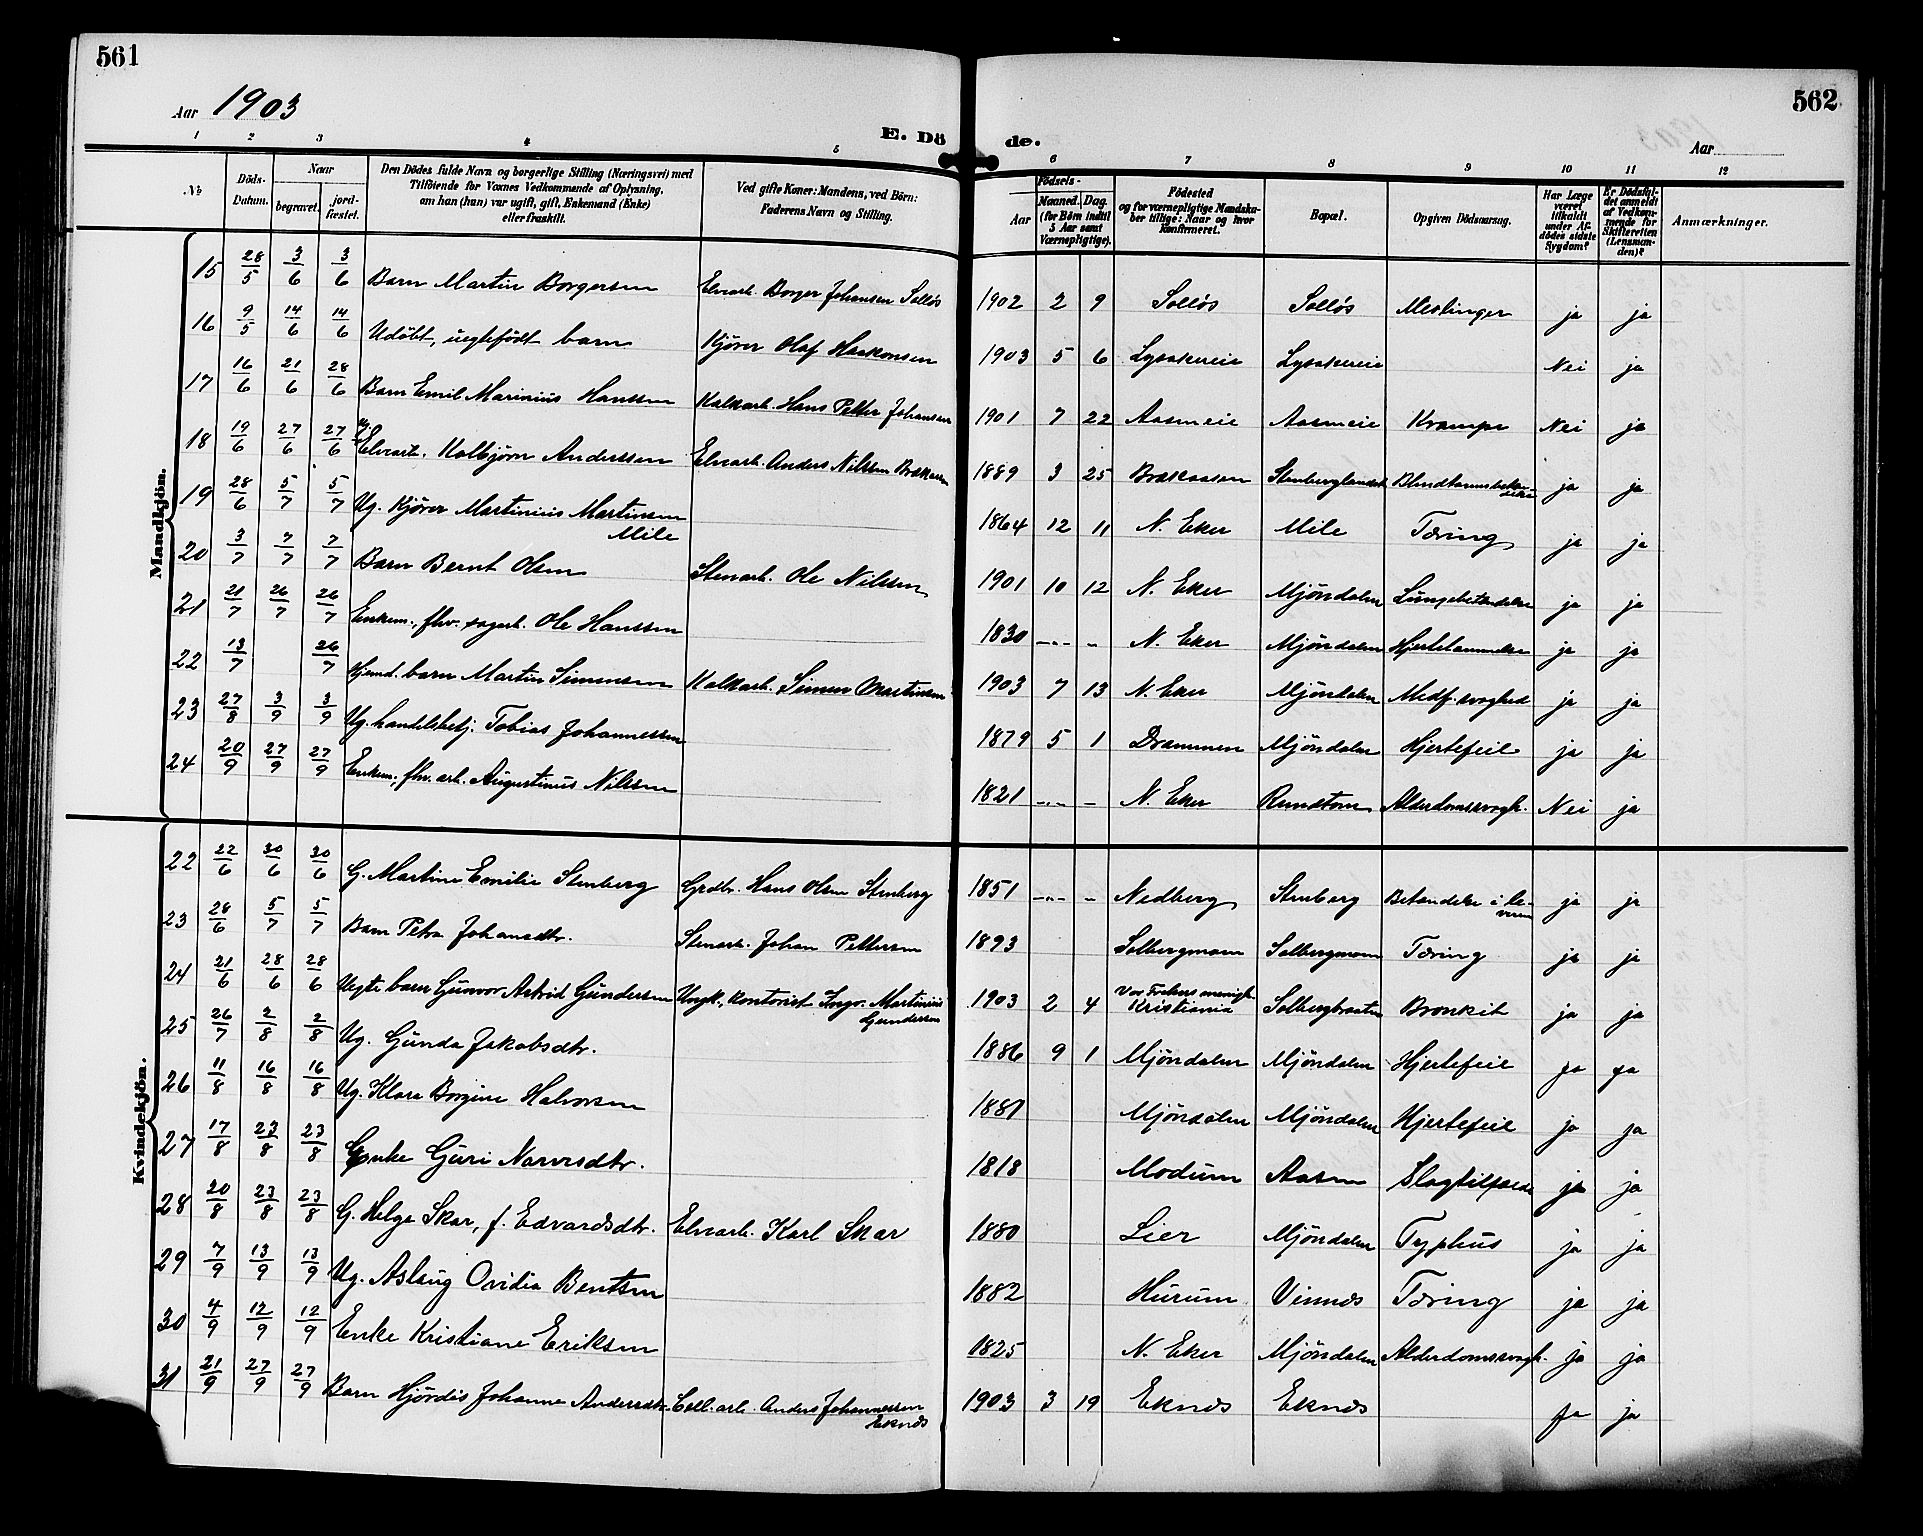 561
562
Aar 1903
E. Dö de.
Aar
1 2 3 4 5 6 7 8 9 10 11 12
No
Döds-Datum.
Naar
begravet.
jord-fæstet.
Den Dödes fulde Navn og borgerlige Stilling (Næringsvei) med
Tilföiende for Voxnes Vedkommende af Oplysning,
om han (hun) var ugift, gift, Enkemand (Enke)
eller fraskilt.
Ved gifte Koner: Mandens, ved Börn:
Faderens Navn og Stilling.
Födsels-
Aar
Maaned. Dag.
(for Börn indtil
5 Aar samt
Værnepligtige).
Födested
og for værnepligtige Mandska-
ber tillige: Naar og hvor
Konfirmeret.
Bopæl.
Opgiven Dödsaarsag.
Har Læge
været
tilkaldt
under Af-
dödes sidste
Sygdom?
Er Dödsfal-
det anmeldt
af Vedkom-
mende for
Skifteretten
(Lensman-
den)?
Anmærkninger.
Mandkjön.
15 28/5 3/6 3/6 Barn Martin Borgersen Elvearb. Borger Johansen Solløs 1902 2 9 Solløs Solløs Meslinger ja ja
16 9/5 14/6 14/6 Udöbt, uegtefödt barn Kjører Olaf Haakonsen 1903 5 6 Lysakereie Lysakereie Nei ja
17 16/6 21/6 28/6 Barn Emil Marinius Hanssen Kalkarb. Hans Petter Johansen 1901 7 22 Aasmeie Aasmeie Krampe Nei ja
18 19/6 27/6 27/6 Ug. Elvearb. Kolbjørn Anderssen Elvearb. Anders Nilssen Brækaasen 1889 3 25 Brækaasen Stenberglandet ja ja
19 28/6 5/7 5/7 Ug. Kjører Martinius Martinsen Mile 1864 12 11 N. Eker Mile Tæring ja ja
20 3/7 7/7 7/7 Barn Bernt Olsen Stenarb. Ole Nilssen 1901 10 12 N. Eker Mjöndalen Lungebetændelse ja ja
21 21/7 26/7 26/7 Enkem., fhv. sagarb. Ole Hanssen 1830 -"- - N. Eker Mjöndalen Hjertelammelse ja ja
22 13/7 26/7 Hjemd. barn Martin Simensen Kalkarb. Simen Martinsen 1903 7 13 N. Eker Mjöndalen Medf. svaghed ja ja
23 27/8 3/9 3/9 Ug. handelsbetj. Tobias Johannessen 1879 5 1 Drammen Mjöndalen Hjertefeil ja ja
24 20/9 27/9 27/9 Enkem., fhv. arb. Augustinus Nilssen 1821 -"- - N. Eker Rundtom Alderdomssvagh. Nei ja
Kvindekjön.
22 22/6 30/6 30/6 G. Martine Emilie Stenberg Grdbr. Hans Olsen Stenberg 1851 -"- - Nedberg Stenberg Betændelse i leveren ja ja
23 28/6 5/7 5/7 Barn Petra Johansdtr. Stenarb. Johan Pettersen 1893 Solbergmoen Solbergmoen Tæring ja ja
24 21/6 28/6 28/6 Uegte barn Gunvor Astrid Gundersen Ungk., kontorist Ingv. Martinius Gundersen 1903 2 4 Vor Frelsers menigh. Kristiania Solbergbraaten Bronkit ja ja
25 26/7 2/8 2/8 Ug. Gunda Jakobsdtr. 1886 9 1 Mjöndalen Mjöndalen Hjertefeil ja ja
26 11/8 16/8 16/8 Ug. Klara Borgine Halvorsen 1887 Mjöndalen Mjöndalen Hjertefeil ja ja
27 17/8 23/8 23/8 Enke Guri Narvesdtr. 1818 Modum Aasen Slagtilfælde ja ja
28 20/8 23/8 23/8 G. Helga Skar, f. Edvardsdtr. Elvearb. Karl Skar 1880 Lier Mjöndalen Typhus ja ja
29 7/9 13/9 13/9 Ug. Aslaug Ovidia Bentsen 1882 Hurum Vinnes Tæring ja ja
30 4/9 12/9 12/9 Enke Kristiane Eriksen 1825 N. Eker Mjöndalen Alderdomssvagh. ja ja
31 21/9 27/9 27/9 Barn Hjördis Johanne Andersdtr. Cell.arb. Anders Johannessen Eknes 1903 3 19 Eknes Eknes ja ja